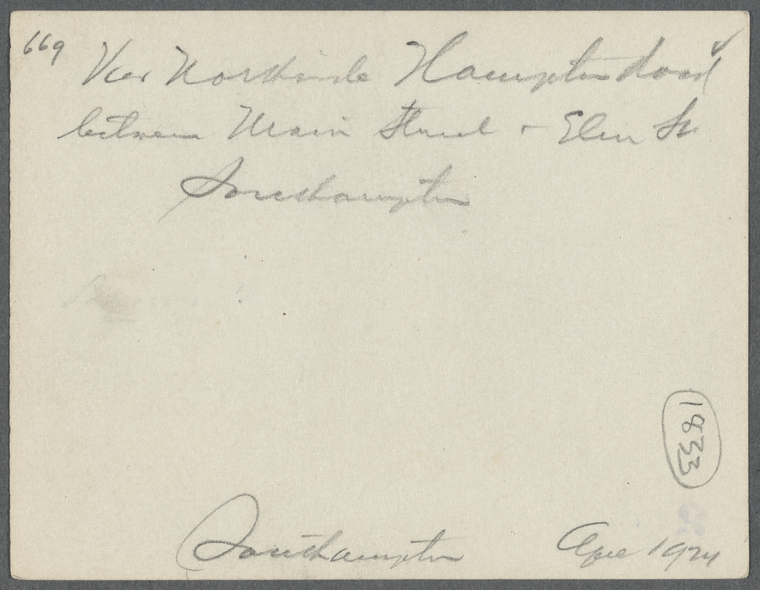 669 View North side Hampton Road
between Main Street + Elm St
Southampton
1833
Southampton Apr 1924